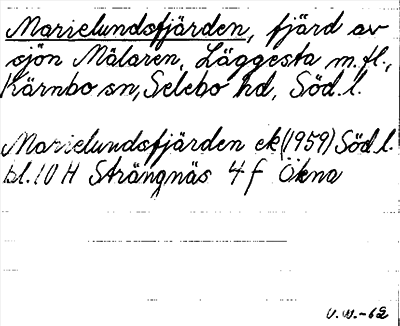 Marielundsfjärden, fjärd av
sjön Mälaren, Läggesta m.fl.,
Kärnbo sn, Selebo hd, Söd.l.
Marielundsfjärden ek (1959) Söd.l.
bl. 10 H Strängnäs 4 f Åkna
V.W.-62